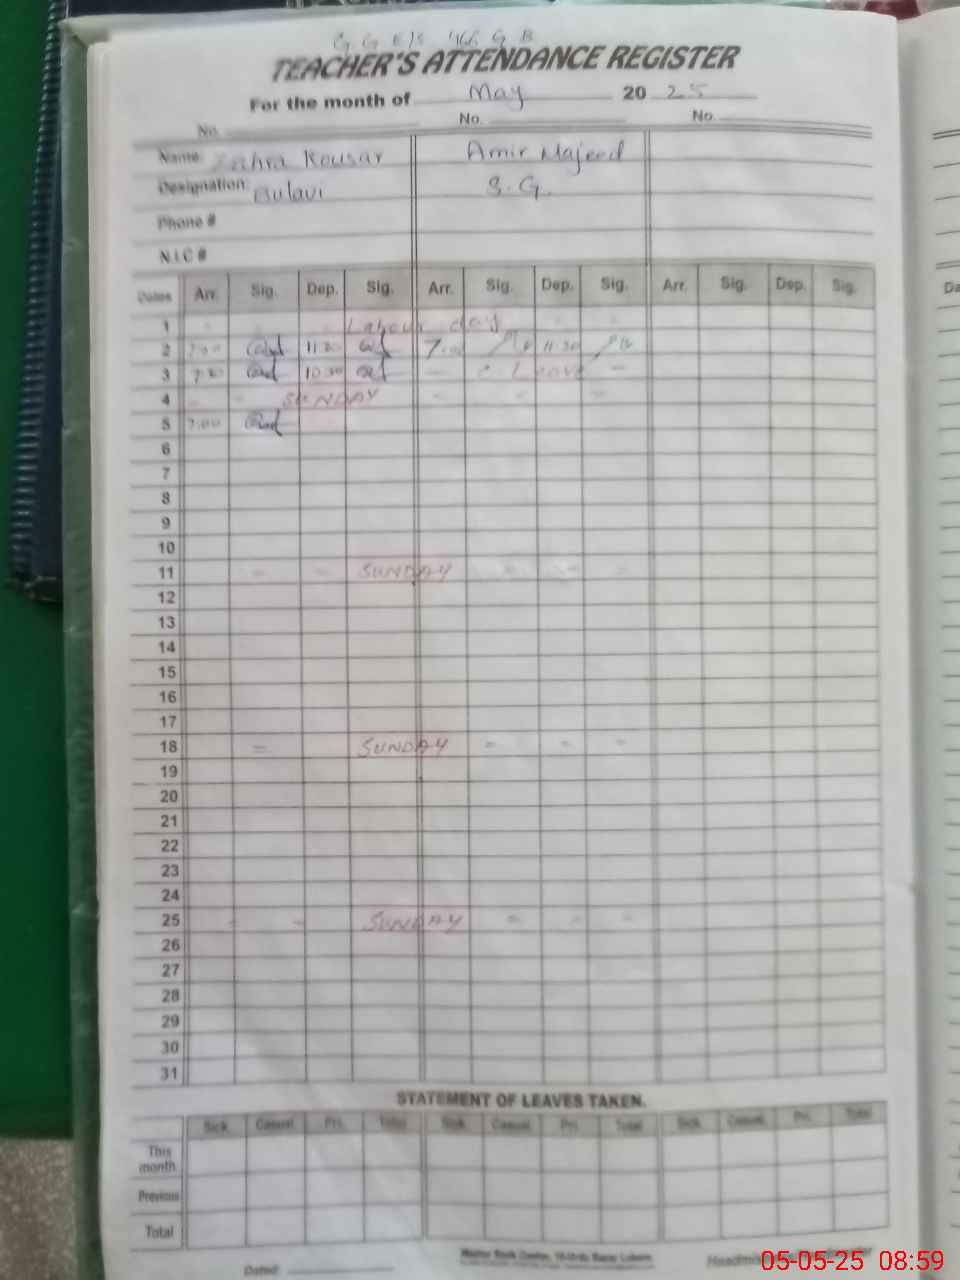 G G E/S 466 G B
TEACHER'S ATTENDANCE REGISTER
For the month of May 20 25
No. No. No.
Name: Zahra Kousar Amir Majeed
Designation: Bulavi S.G.
Phone #
N.I.C #
Dates Arr. Sig. Dep. Sig. Arr. Sig. Dep. Sig. Arr. Sig. Dep. Sig.
1 Labour day
2 7:00 11:30 7:00 11:30
3 7:30 10:30 - C. Leave -
4 - - SUNDAY - - -
5 7:00
6
7
8
9
10
11 - - SUNDAY - - -
12
13
14
15
16
17
18 = SUNDAY = - -
19
20
21
22
23
24
25 - - SUNDAY = - -
26
27
28
29
30
31
STATEMENT OF LEAVES TAKEN.
Sick Casual Pri. Total Sick Casual Pri. Total Sick Casual Pri. Total
This month
Previous
Total
Dated
05-05-25 08:59